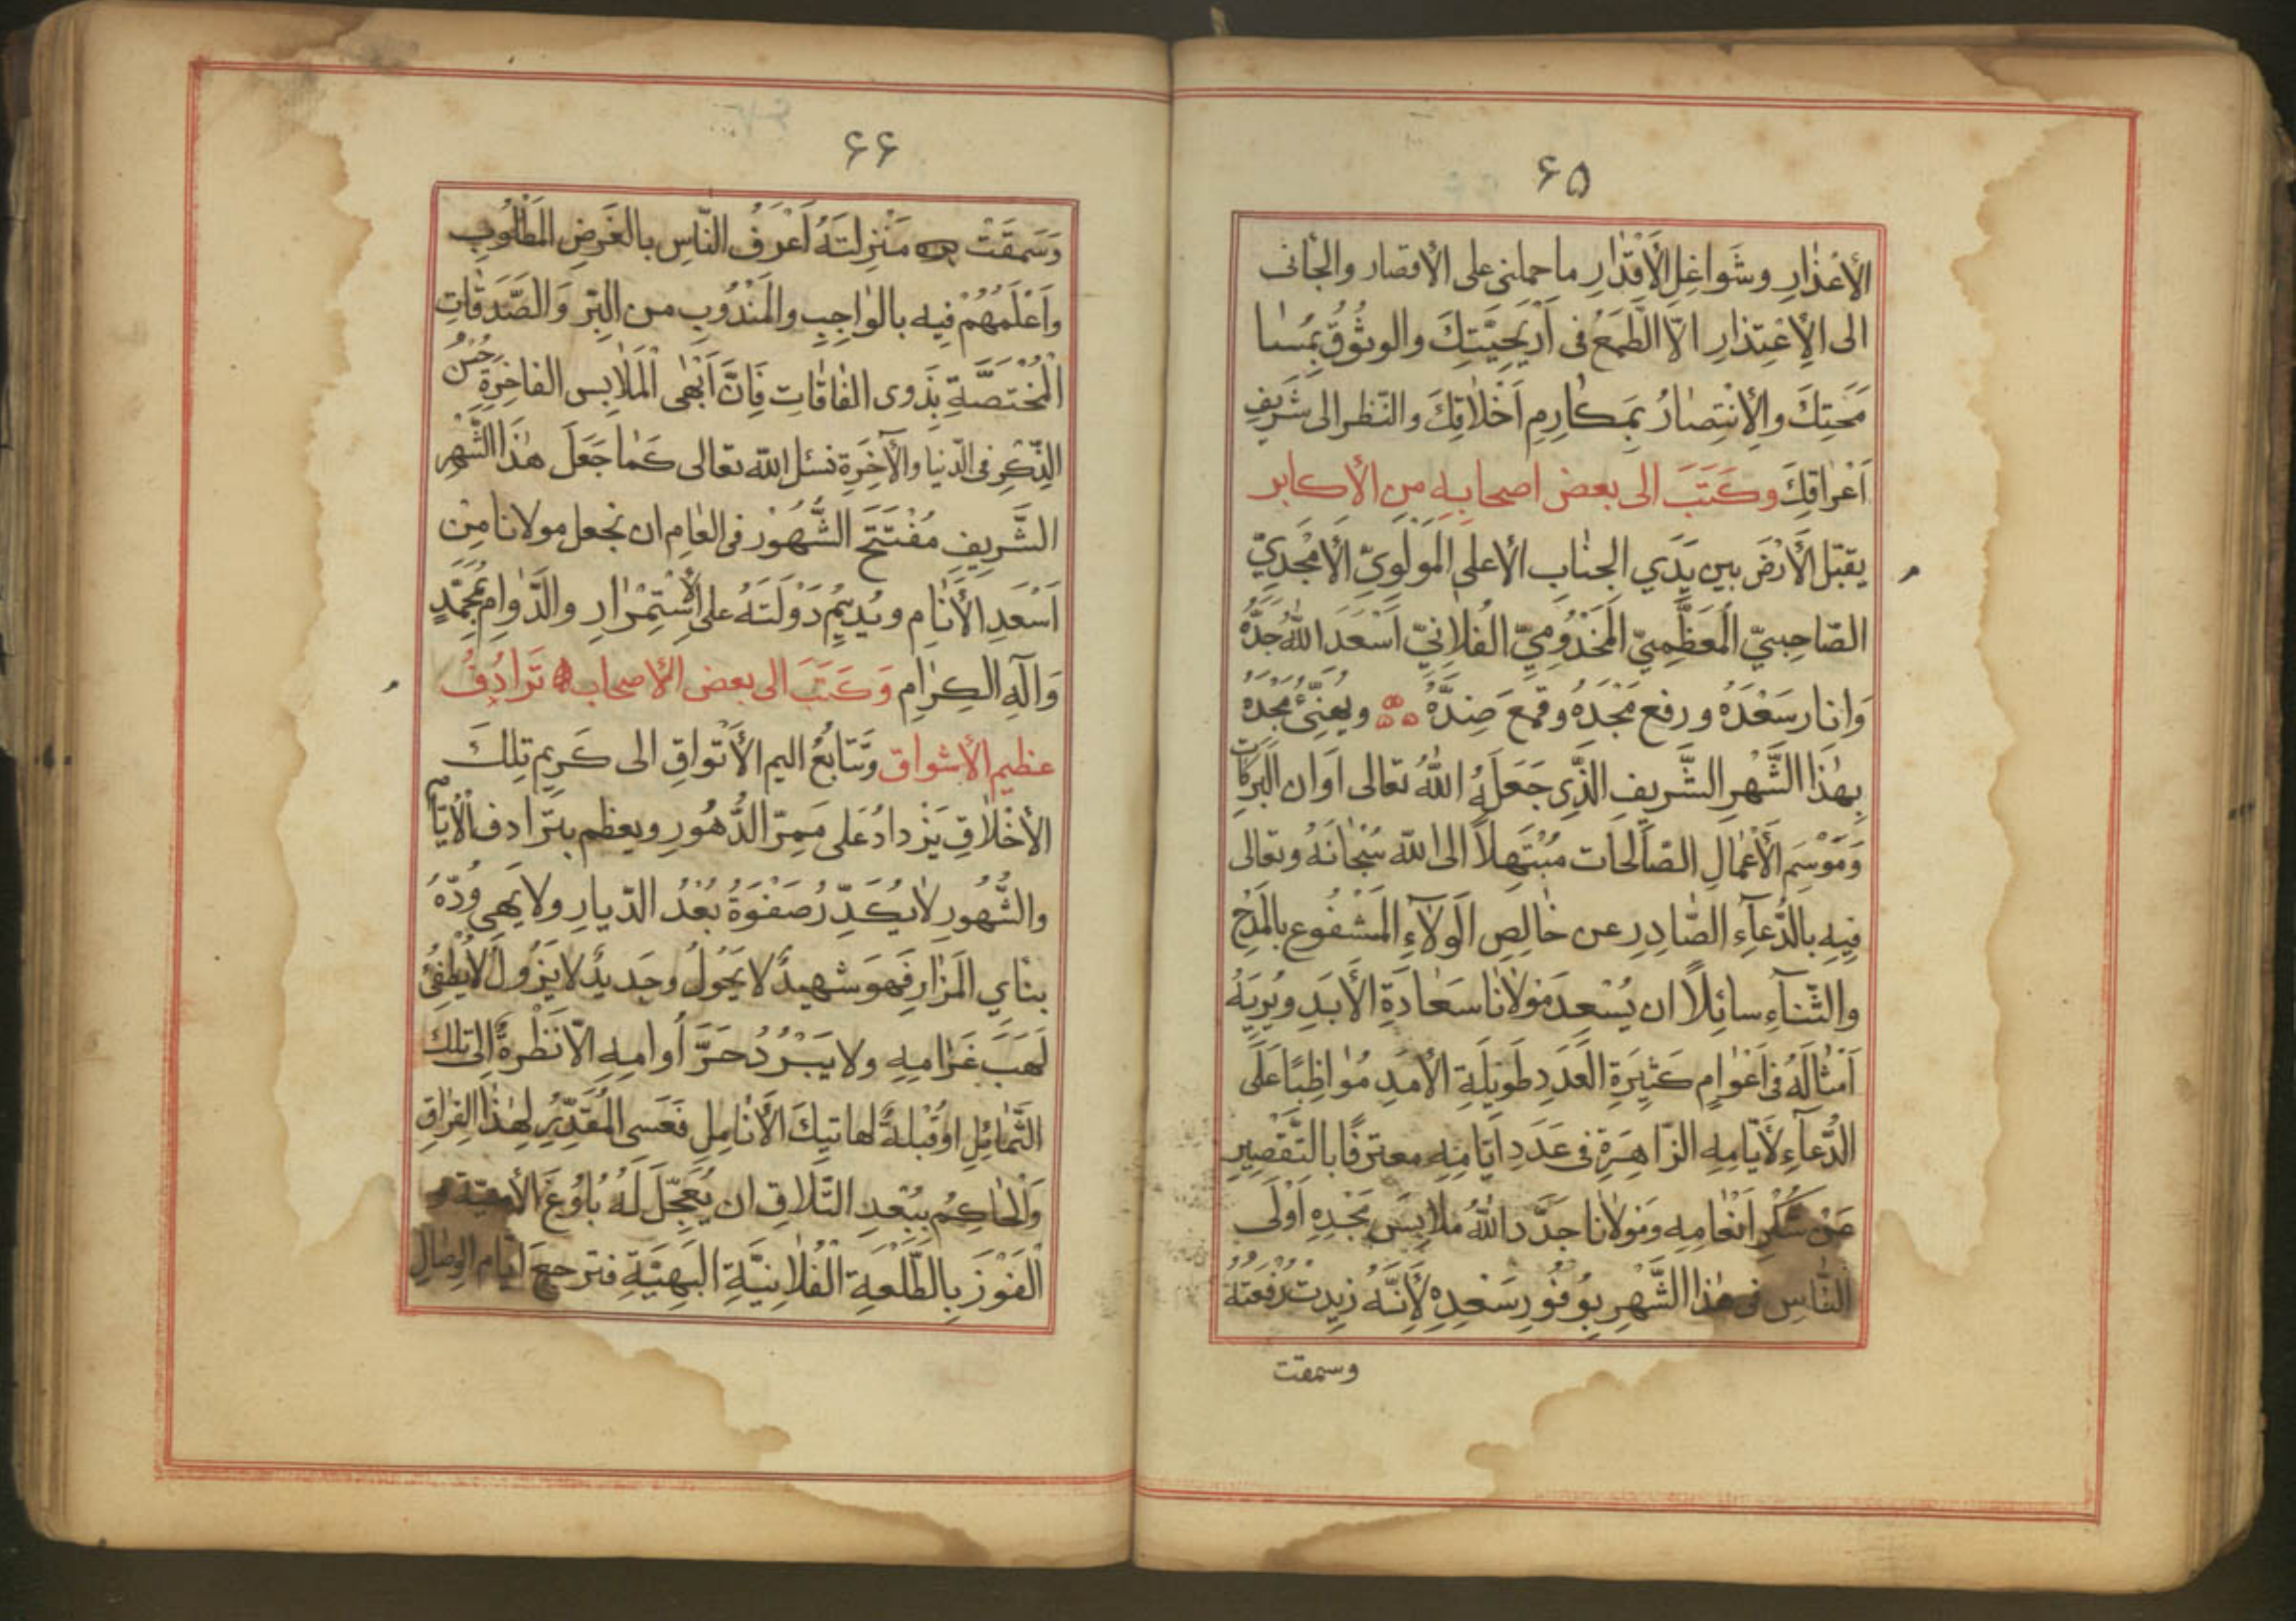 ۶۵
الأعْذٰارِ وشَواغِلِ الأَقْدٰارِ ما حملنى على الأقصار والجٰأنى
الى الإعْتِذارِ الّا الطَّمَعُ فى أَرْيَحِيَّتِكَ والوثُوقُ بِمُسٰا
مَحَتِكَ والإنْتِصٰارُ بِمَكٰارِمِ اَخْلٰاقِكَ والنّظر الى شَرِيفِ
اَعْرٰاقِكَ وكَتَبَ الى بعض اصحابِهِ مِن الأكابر
يقبّل الأَرْضَ بين يَدَي الجنٰابِ الأعلى المَوْلَوِيّ الأمْجَدِيّ
الصّاحِبيّ المُعَظَّمِيّ المَخْدُومِيّ الفُلانِيّ اَسْعَدَ اللّٰهُ جَدَّهُ
وَانار سَعْدَهُ ورفع مَجْدَهُ وقمع ضِدَّهُ ويُهَنِّئُ مَجْدَهُ
بِهٰذَا الشَّهْرِ الشَّرِيفِ الَّذِى جَعَلَهُ اللّٰهُ تعالى اَوان البَرَكٰات
وَمَوْسِمَ الأَعْمٰالِ الصّٰالحات مُبْتَهِلاً الى اللّٰه سُبْحٰانَهُ وتعالى
فِيهِ بالدُّعٰآءِ الصّٰادِرِ عن خٰالِصِ الوَلآءِ المَشْفُوعِ بالمَدْحِ
والثّنآءِ سائِلاً ان يُسْعِدَ مَوْلٰانٰا سَعٰادَةَ الأَبَدِ ويُرِيَهُ
اَمْثٰالَهُ فى اَعْوٰامٍ كَثِيرَةِ العَدَدِ طَوِيلَةِ الأمَدِ مُوٰاظِبًا عَلَى
الدُّعآءِ لأَيّامِهِ الزّاهِرَةِ فى عَدَدِ اَيّامِهِ معترفًا بالتَّقْصِيرِ
عَنْ شُكْرِ اِنْعٰامِهِ وَمَوْلٰانا جَدَّدَ اللّٰهُ مَلابِسَ مَجْدِهِ اَوْلَى
النّٰاسِ فى هٰذا الشَّهْرِ بِوُفُورِ سَعْدِهِ لأَنَّهُ زِيدتْ رفْعَتهُ
وسمقت
۶۶
وَسَمقَتْ مَنْزِلَتَهُ اَعْرَفُ النّاسِ بالغَرَضِ المَطْلُوبِ
واَعْلَمُهُمْ فِيه بالوٰاجِبِ والمَنْدُوبِ من البِرِّ وَالصَّدَقٰاتِ
المُخْتَصَّةِ بِذَوى الفٰاقٰاتِ فَاِنَّ اَبْهَى المَلٰابِس الفاخِرَةِ حُسْنُ
الذِّكْرِ فى الدّنيا والآخِرَةِ نسئل اللّه تعالى كَمٰا جَعَلَ هٰذَا الشَّهْر
الشَّرِيفِ مُفْتَتَحَ الشُّهُوْرِ فى العٰامِ ان يجعل مولانا مِنْ
اَسْعَدِ الأَنٰامِ ويُدِيمُ دَوْلَتَهُ على الأسْتِمْرٰارِ والدَّوٰامِ بمُحَمَّدٍ
وَآلِهِ الكِرٰامِ وَكَتَبَ الى بعض الأصحاب تَرٰادُفُ
عظيم الأشواق وتَتابُعُ اليم الأتْواقِ الى كَرِيم تِلكَ
الأخْلٰاقِ يَزْدادُ عَلى مَمِرّ الدُّهُورِ ويعظم بتَرادف الأيّام
والشُّهُورِ لٰا يُكَدِّرُ صَفْوَهُ بُعْدُ الدّيارِ ولا يَهِي وُدّهُ
بنٰايِ المَزٰارِ فَهوَ شهيدٌ لا يَحُولُ وجَديدٌ لا يَزُولُ لا يُطْفِئُ
لَهَبَ غَرٰامِهِ ولا يَبْرُدُ حَرَّ أُوامِهِ الّا نَظْرَةٌ اِلى تلك
الشَّمٰائِلِ اوْ قُبْلةٌ لهاتيكَ الأَنٰامِلِ فَعَسى المُقَدِّرُ لِهٰذَا الفِرٰاقِ
وَالحٰاكِمُ بِبُعْدِ التَّلاقِ ان يُعَجِّلَ لَهُ بُلُوغَ الأُمنيّة و
الفَوْزَ بِالطّلْعَةِ الفُلانِيَّةِ البَهِيَّةِ فترجعَ ايّام الوِصٰالِ